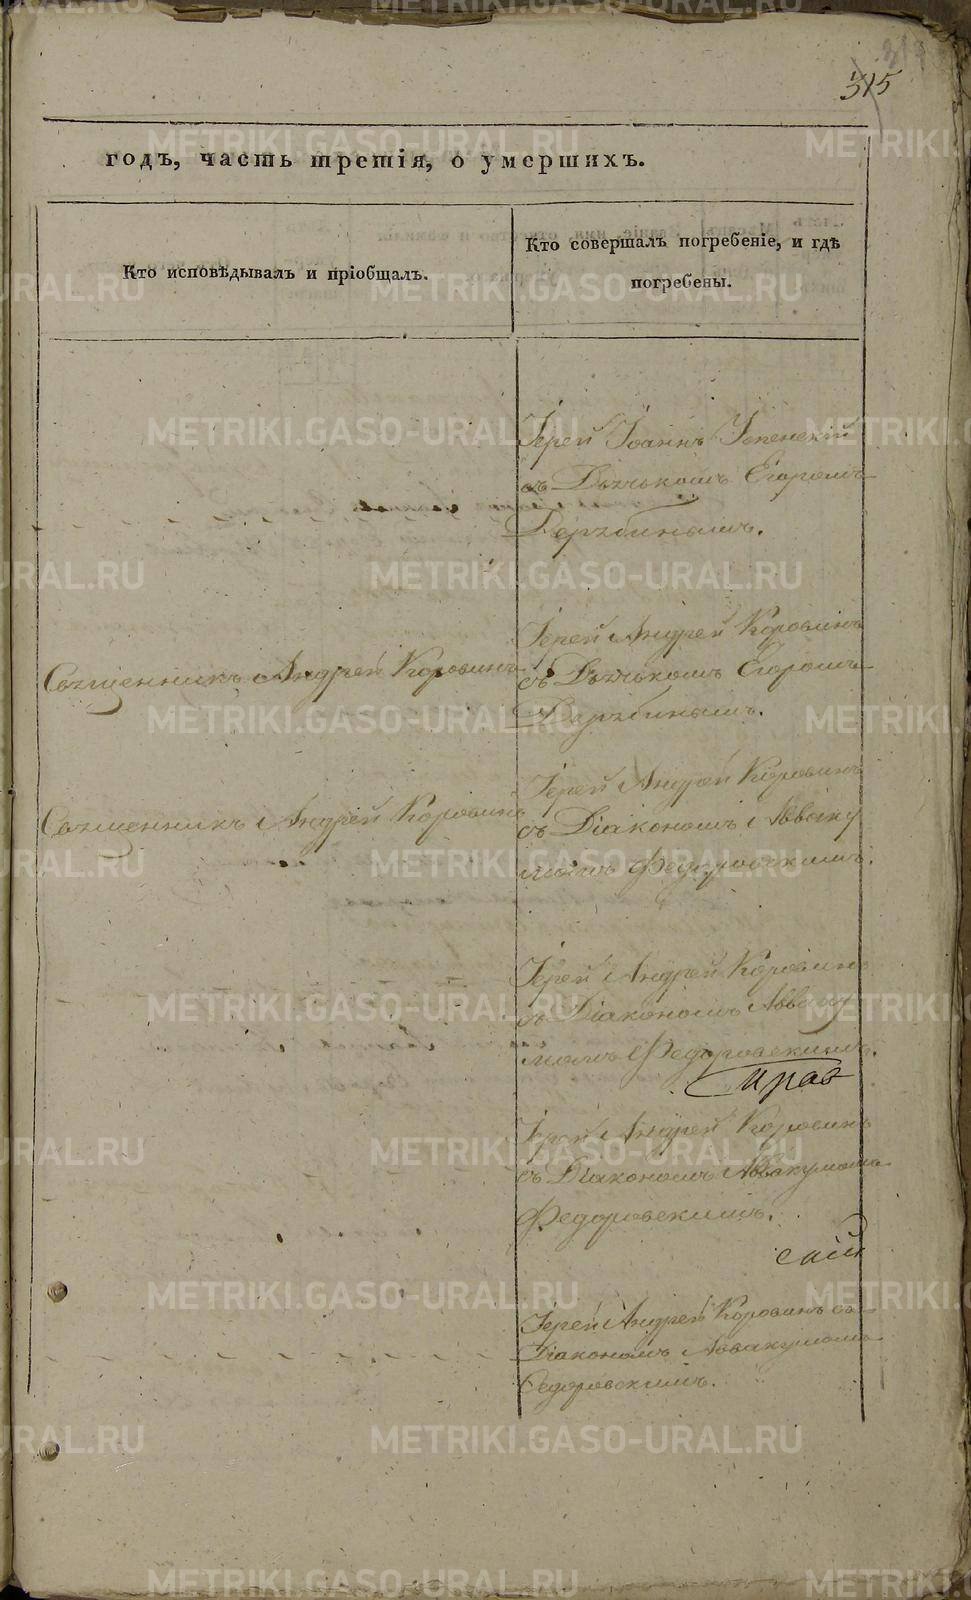 315
годъ, часть третія, о умершихъ.
Кто исповѣдывалъ и пріобщалъ.
Кто совершалъ погребеніе, и гдѣ
погребены.
Іерей Іоаннъ Успенскій
съ Дьячькомъ Егоромъ
Дерябинымъ.
Священникъ Андрей Коровинъ
Іерей Андрей Коровинъ
съ Дьячькомъ Егоромъ
Дерябинымъ.
Священникъ Андрей Коровинъ
Іерей Андрей Коровинъ
съ Діакономъ Авваку
момъ Федоровскимъ.
Іерей Андрей Коровинъ
съ Діакономъ Авваку
момъ Федоровскимъ.
Іерей Андрей Коровинъ
съ Діакономъ Аввакумомъ
Федоровскимъ.
Іерей Андрей Коровинъ съ
Діакономъ Аввакумомъ
Федоровскимъ.
METRIKI.GASO-URAL.RU